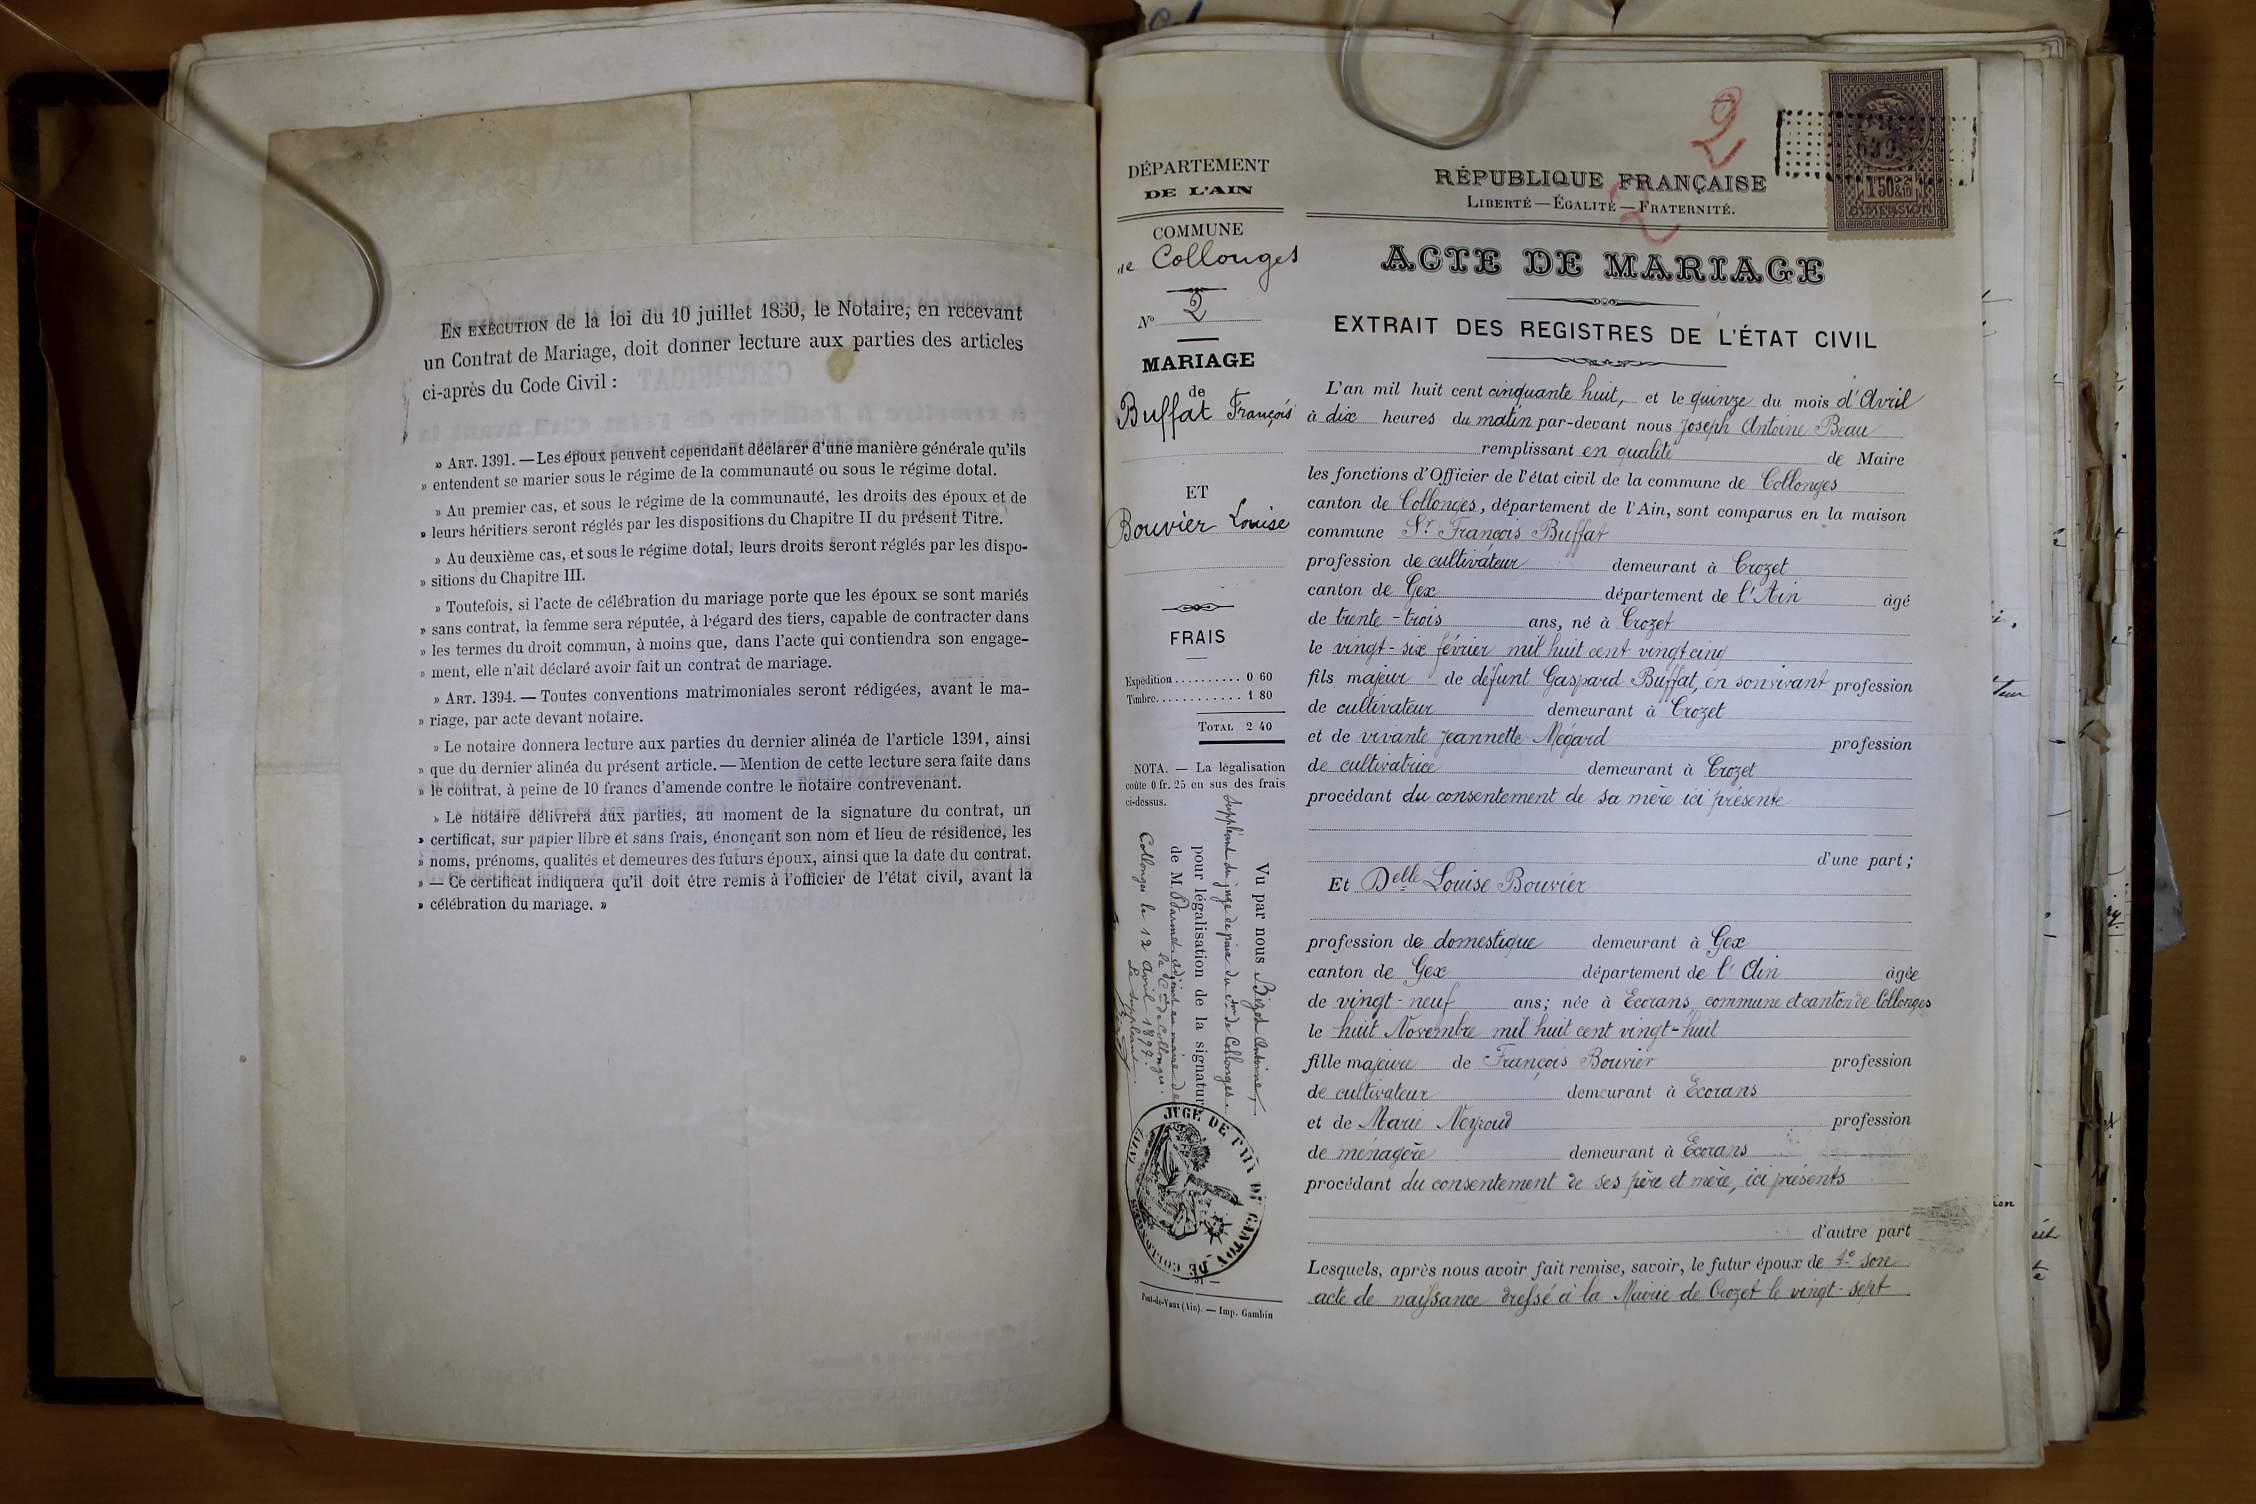 EN EXÉCUTION de la loi du 10 juillet 1850, le Notaire, en recevant
un Contrat de Mariage, doit donner lecture aux parties des articles
ci-après du Code Civil :
» ART. 1391. — Les époux peuvent cependant déclarer d'une manière générale qu'ils
» entendent se marier sous le régime de la communauté ou sous le régime dotal.
» Au premier cas, et sous le régime de la communauté, les droits des époux et de
» leurs héritiers seront réglés par les dispositions du Chapitre II du présent Titre.
» Au deuxième cas, et sous le régime dotal, leurs droits seront réglés par les dispo-
» sitions du Chapitre III.
» Toutefois, si l'acte de célébration du mariage porte que les époux se sont mariés
» sans contrat, la femme sera réputée, à l'égard des tiers, capable de contracter dans
» les termes du droit commun, à moins que, dans l'acte qui contiendra son engage-
» ment, elle n'ait déclaré avoir fait un contrat de mariage.
» ART. 1394. — Toutes conventions matrimoniales seront rédigées, avant le ma-
» riage, par acte devant notaire.
» Le notaire donnera lecture aux parties du dernier alinéa de l'article 1391, ainsi
» que du dernier alinéa du présent article. — Mention de cette lecture sera faite dans
» le contrat, à peine de 10 francs d'amende contre le notaire contrevenant.
» Le notaire délivrera aux parties, au moment de la signature du contrat, un
» certificat, sur papier libre et sans frais, énonçant son nom et lieu de résidence, les
» noms, prénoms, qualités et demeures des futurs époux, ainsi que la date du contrat.
» — Ce certificat indiquera qu'il doit être remis à l'officier de l'état civil, avant la
» célébration du mariage. »
DÉPARTEMENT
DE L'AIN
COMMUNE
de Collonges
N° 2
MARIAGE
de
Buffat François
ET
Bouvier Louise
FRAIS
Expédition .......... 0 60
Timbre .......... 1 80
TOTAL 2 40
NOTA. — La légalisation
coûte 0 fr. 25 en sus des frais
ci-dessus.
Vu par nous Antoine,
Suppléant du juge de paix du Cton de Collonges.
pour légalisation de la signature
de M. adjoint au maire de
la Cne de Collonges.
Collonges le 12 Avril 1897.
Le suppléant
JUGE DE PAIX DU CANTON DE COLLONGES
(AIN)
Pont-de-Vaux (Ain). — Imp. Gambin
2
2
1F50 & 2/10
DIMENSION
RÉPUBLIQUE FRANÇAISE
LIBERTÉ — ÉGALITÉ — FRATERNITÉ.
ACTE DE MARIAGE
EXTRAIT DES REGISTRES DE L'ÉTAT CIVIL
L'an mil huit cent cinquante huit, et le quinze du mois d'Avril
à dix heures du matin par-devant nous Joseph Antoine Beau
remplissant en qualité de Maire
les fonctions d'Officier de l'état civil de la commune de Collonges
canton de Collonges, département de l'Ain, sont comparus en la maison
commune Sr François Buffat
profession de cultivateur demeurant à Crozet
canton de Gex département de l'Ain âgé
de trente-trois ans, né à Crozet
le vingt-six février mil huit cent vingt cinq
fils majeur de défunt Gaspard Buffat, en son vivant profession
de cultivateur demeurant à Crozet
et de vivante Jeannette Mégard profession
de cultivatrice demeurant à Crozet
procédant du consentement de sa mère ici présente
d'une part ;
Et Delle Louise Bouvier
profession de domestique demeurant à Gex
canton de Gex département de l'Ain âgée
de vingt-neuf ans; née à Ecorans, commune et canton de Collonges
le huit Novembre mil huit cent vingt-huit
fille majeure de François Bouvier profession
de cultivateur demeurant à Ecorans
et de Marie Neyroud profession
de ménagère demeurant à Ecorans
procédant du consentement de ses père et mère, ici présents
d'autre part
Lesquels, après nous avoir fait remise, savoir, le futur époux de 1° son
acte de naissance dressé à la Mairie de Crozet le vingt-sept